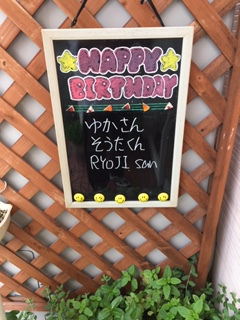 HAPPY
BIRTHDAY
ゆかさん
そうたくん
RYOJI san